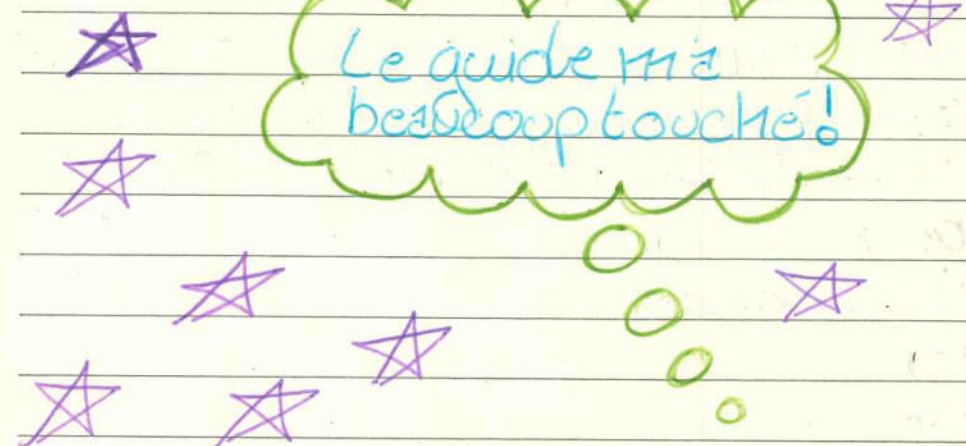 Le guide m'a
beaucoup touché !